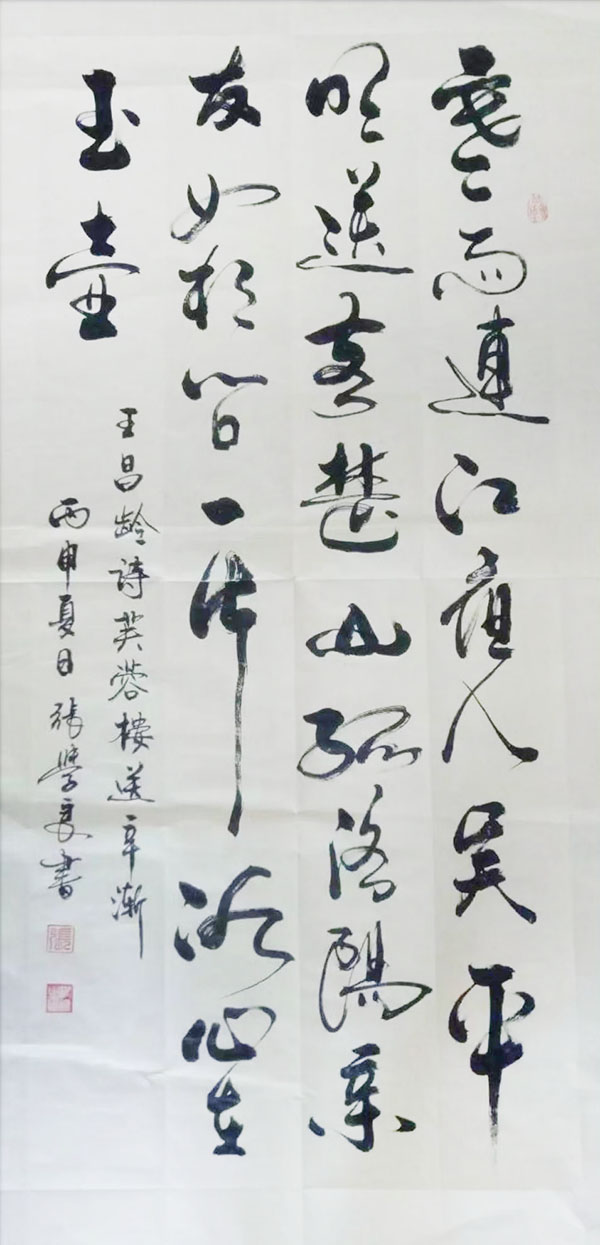 寒雨連江夜入吴平
明送客楚山孤洛陽親
友如相問一片冰心在
玉壺
王昌龄诗芙蓉樓送辛漸
丙申夏日張學良書